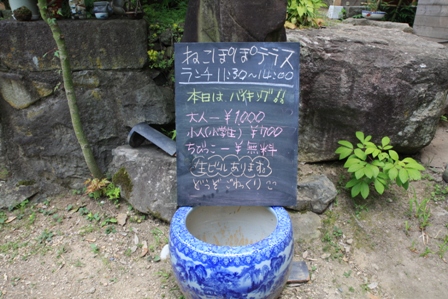 ねこぽぽテラス
ランチ 11:30〜14:00
本日は バイキング!!
大人ー¥1,000
小人(小学生) ¥700
ちびっこー¥無料
生ビールあります。
どうぞごゆっくり